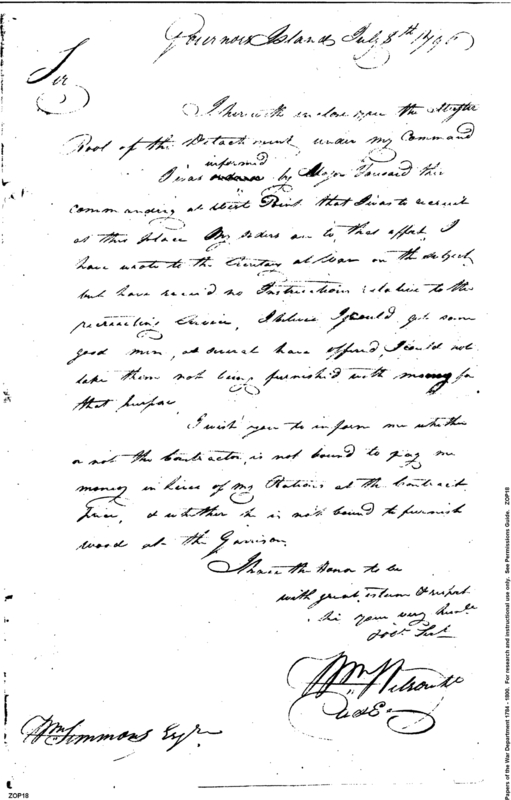 Governors Island July 8th 1796
Sir
I herewith inclose you the Muster
Rool of the Detachment under my Command
informed
I was by Major Tousard the
commanding at West Point that I was to recruit
at this place My orders are to that effect, I
have wrote to the Secretary at War on the subject
but have receiv'd no Instructions relative to the
recruiting Service, I believe I could get some
good men, as several have offered, I could not
take them not being furnish'd with money for
that purpose
I wish you to inform me whether
or not the Contractor, is not bound to pay me
money in lieu of my Rations at the Contract
Price, & whether he is not bound to furnish
wood at the Garrison.
I have the Honor to be
with great esteem & respect
Sir your very humle
Obt Sert
Wm Wilson Lt
A & E
Wm Simmons Esqr
ZOP18
Papers of the War Department 1784 - 1800. For research and instructional use only. See Permissions Guide. ZOP18